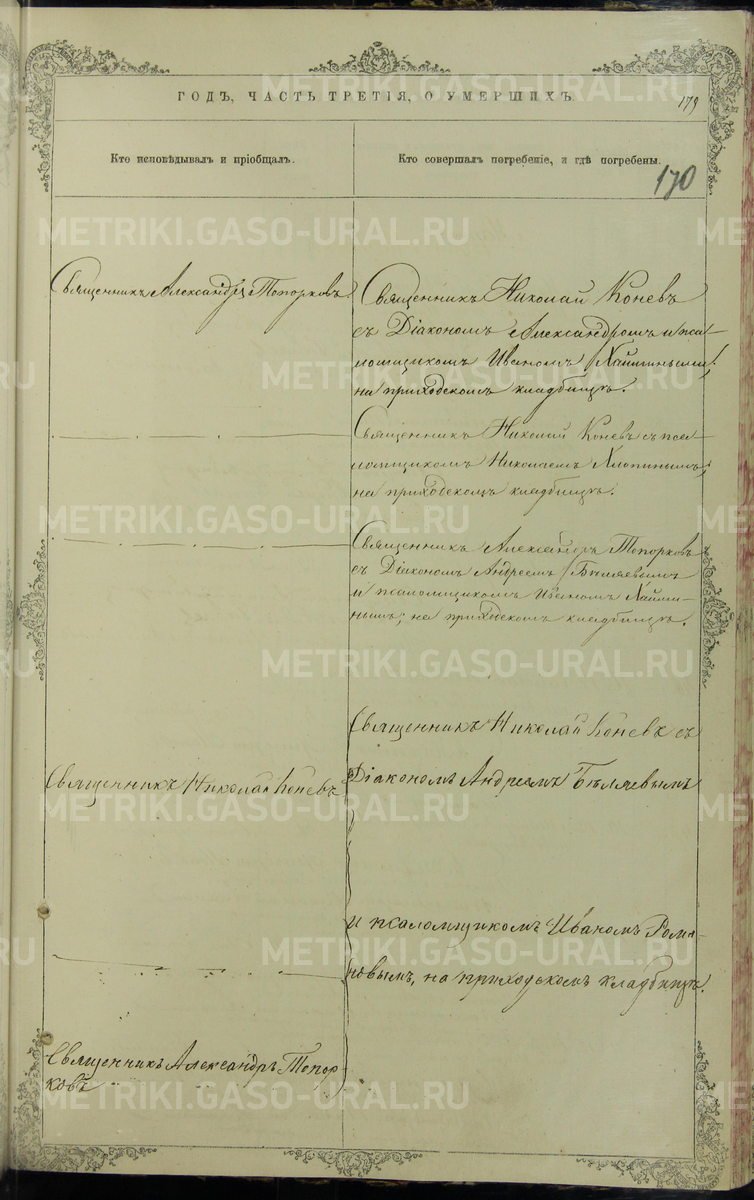 ГОДЪ, ЧАСТЬ ТРЕТІЯ, О УМЕРШИХЪ.
179
Кто исповѣдывалъ и пріобщалъ.
Кто совершалъ погребеніе, и гдѣ погребены.
170
Священникъ Александръ Топорковъ.
Священникъ Николай Коневъ
съ Діакономъ Александромъ и пса-
ломщикомъ Иваномъ
на приходскомъ кладбищѣ.
Священникъ Николай Коневъ съ пса-
ломщикомъ Николаемъ
на приходскомъ кладбищѣ.
Священникъ Александръ Топорковъ
съ Діакономъ Андреемъ Бѣляевымъ
и псаломщикомъ Иваномъ
нымъ; на приходскомъ кладбищѣ.
Священникъ Николай Коневъ съ
Священникъ Николай Коневъ
Діакономъ Андреемъ Бѣляевымъ
и псаломщикомъ Иваномъ Рома-
новымъ, на приходскомъ кладбищѣ.
Священникъ Александръ Топор
ковъ
METRIKI.GASO-URAL.RU